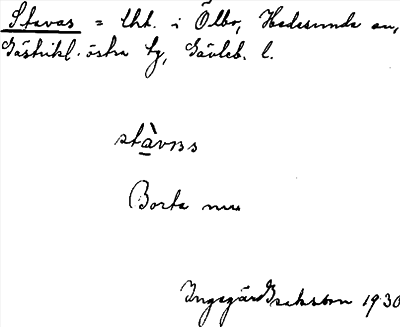 Stavas = lht. i Ölbo, Hedesunda sn,
Gästrikl. östra tg, Gävleb. l.
stàvas
Borta nu
Ingegärd Isaksson 1930